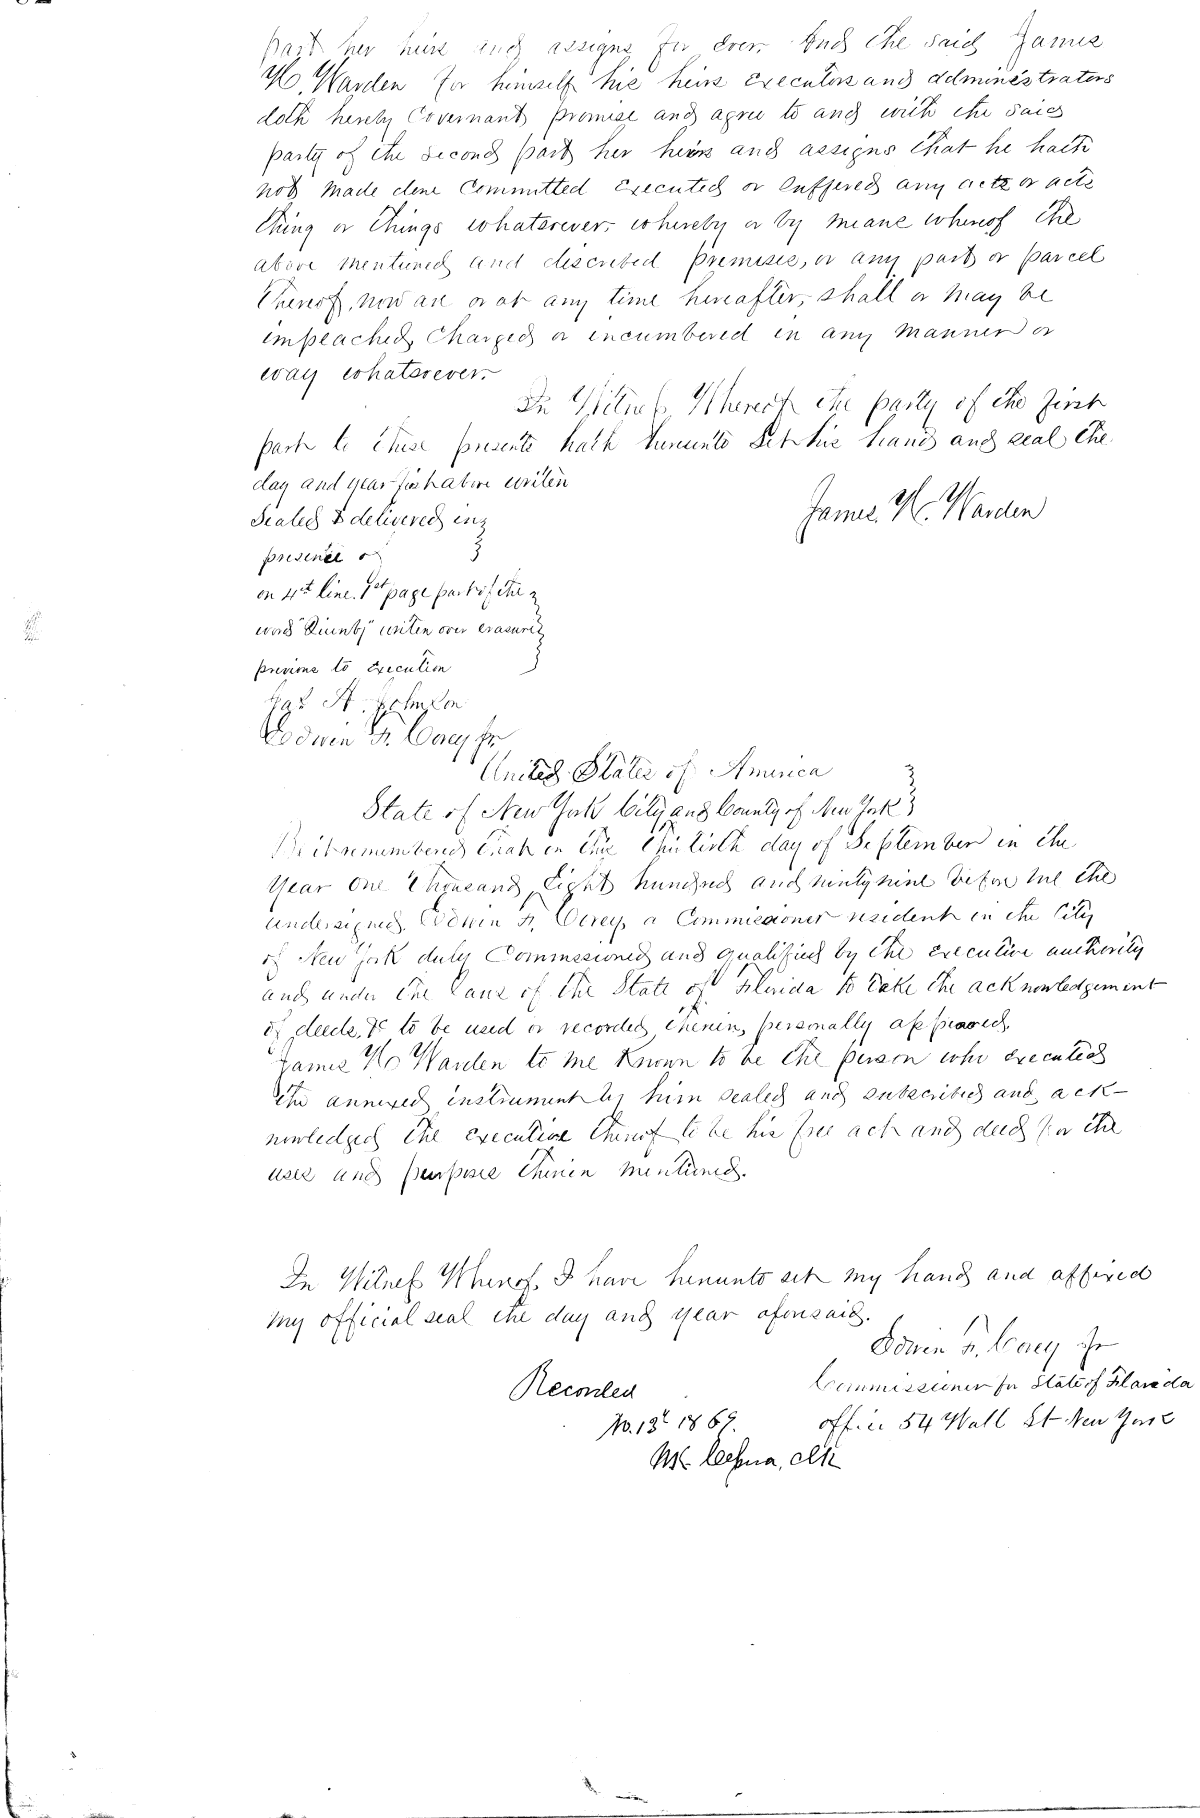 part her heirs and assigns for ever. And the said James
W. Warden for himself his heirs executors and administrators
doth hereby Covernant promise and agree to and with the said
party of the second part her heirs and assigns that he hath
not made done Committed executed or suffered any acts or acts
thing or things whatsoever, whereby or by means whereof the
above mentioned and discribed premises, or any part or parcel
thereof, now are or at any time hereafter, shall or may be
impeached, Charged or incumbered in any manner or
way whatsoever.
In Witness Whereof the party of the first
part to these presents hath hereunto set his hand and seal the
day and year first above writen
Sealed & delivered in
James. W. Warden
presence of
on 4th line. 1st page part of the
word writen over erasure
previous to execution
Jas A. Johnson
Edwin F. Corey Jr
United States of America
State of New York City and County of New York
Be it remembered that on this thirtieth day of September in the
Year one thousand, Eight hundred and nintynine before me the
undersigned, Edwin F. Corey, a Commissioner resident in the City
of New York duly Commssioned and qualified by the executive authority
and under the laws of the State of Florida to take the acknowledgement
of deeds, &c to be used or recorded therein, personally appeared
James W Warden to me Known to be the person who executed
the annexed instrument by him sealed and subscribed and ack-
nowledged the execution thereof to be his free act and deed for the
uses and purposes therein mentioned.
In Witness Whereof, I have hereunto set my hand and affixed
my official seal the day and year aforesaid.
Edwin F. Corey Jr
Commissioner for State of Florida
Recorded
office 54 Wall St New York
No. 13t 1869.
Clk